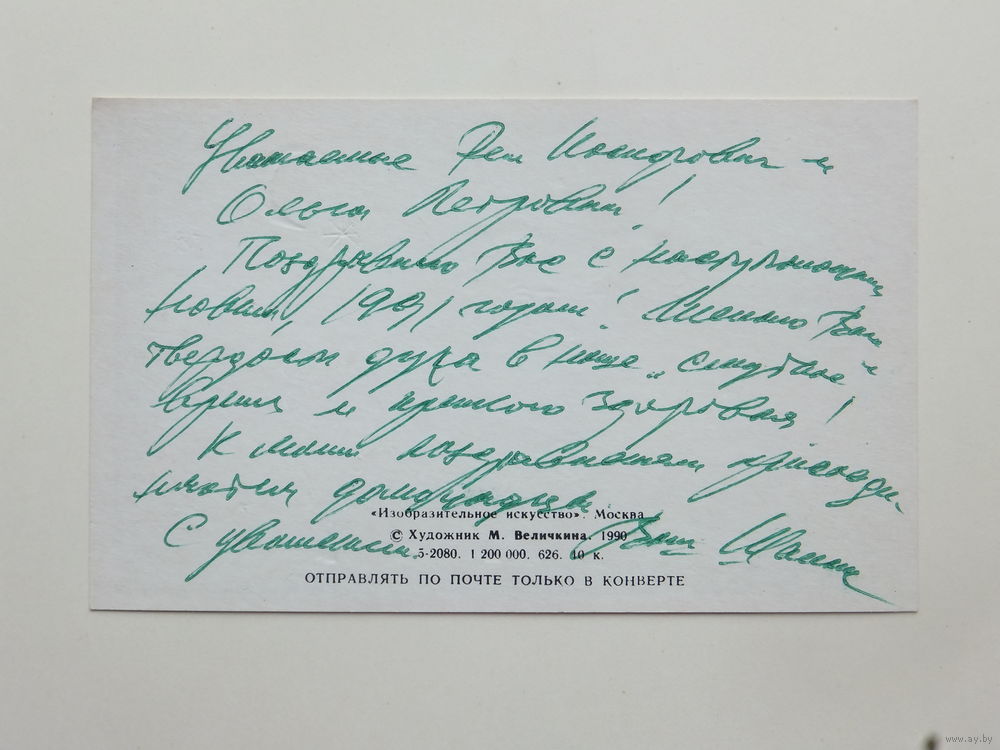 Уважаемые Рем и
Ольга Петровна!
Поздравляю Вас с наступающим
Новым, 1991 годом! Желаю Вам
твердости духа в наше „смутное“
время и крепкого здоровья!
К моим поздравлениям присоеди-
няются домочадцы
«Изобразительное искусство». Москва
© Художник М. Величкина. 1990
5-2080. 1 200 000. 626. 10 к.
С уважением Ваш
ОТПРАВЛЯТЬ ПО ПОЧТЕ ТОЛЬКО В КОНВЕРТЕ
www.ay.by